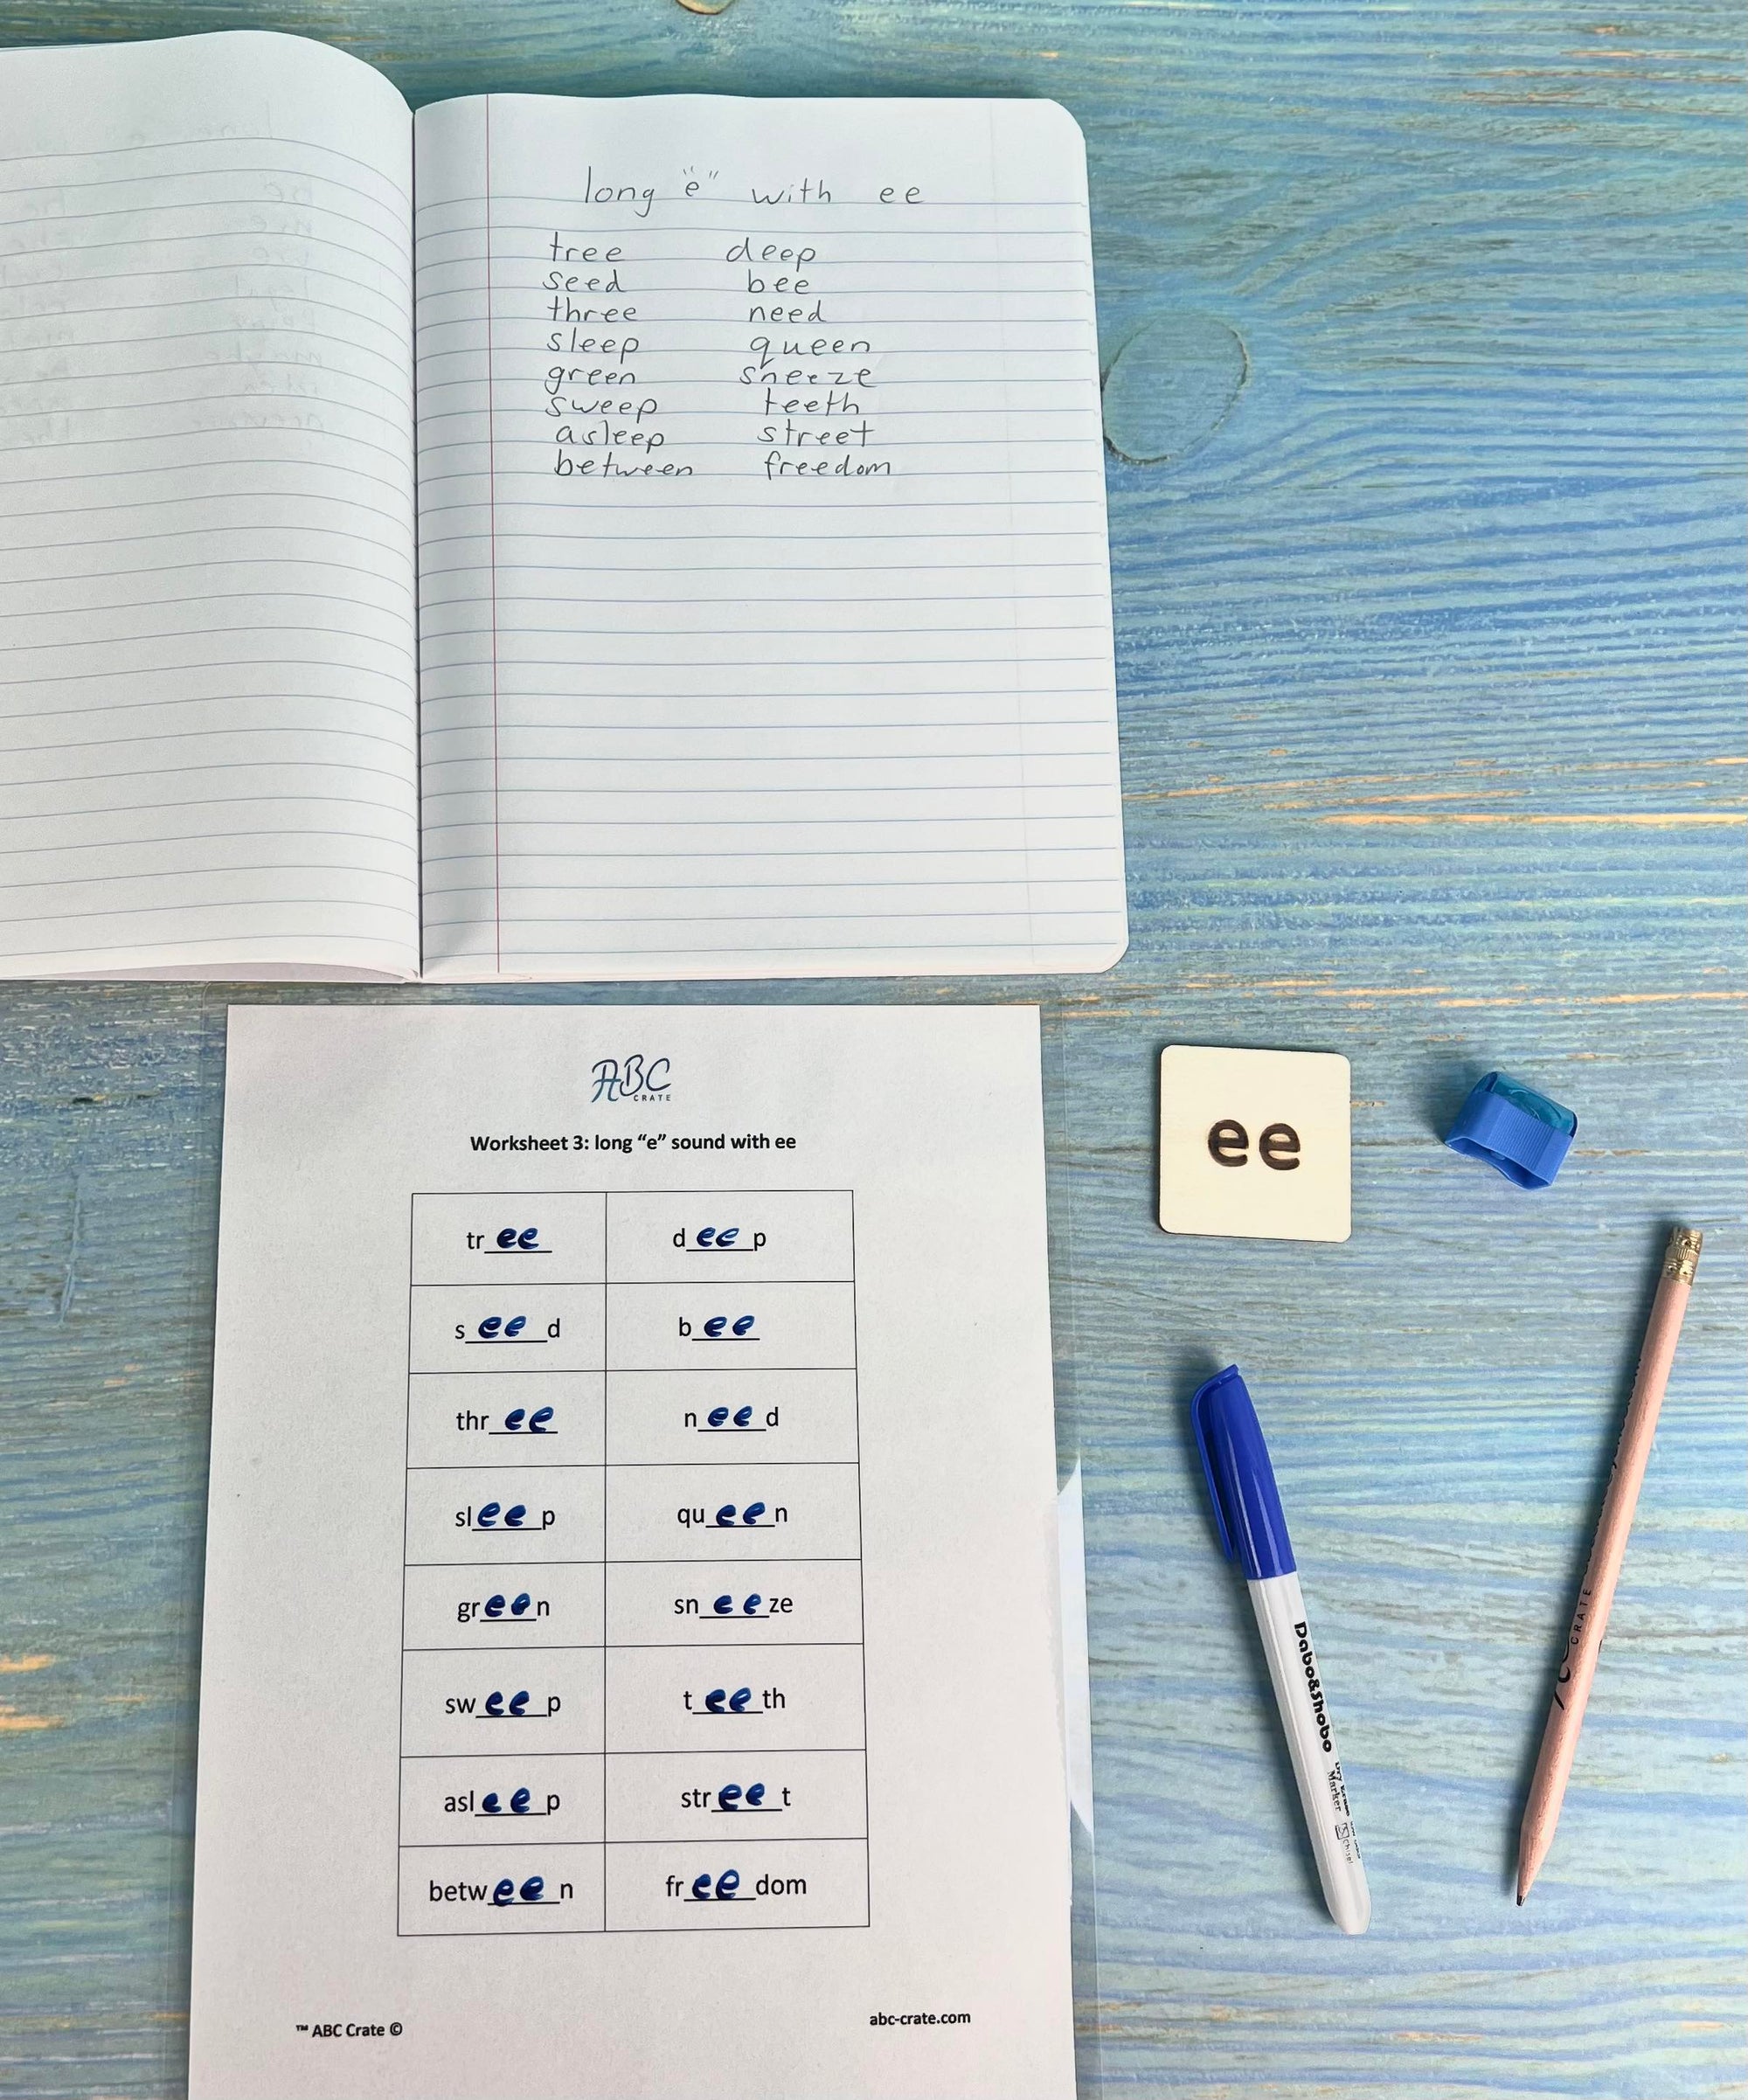 long "e" with ee
tree deep
seed bee
three need
sleep queen
green sneeze
sweep teeth
asleep street
between freedom
ABC
CRATE
Worksheet 3: long “e” sound with ee
tree deep
seed bee
three need
sleep queen
green sneeze
sweep teeth
asleep street
between freedom
™ ABC Crate © abc-crate.com
ee
Dabo&Shobo
Marker
CRATE